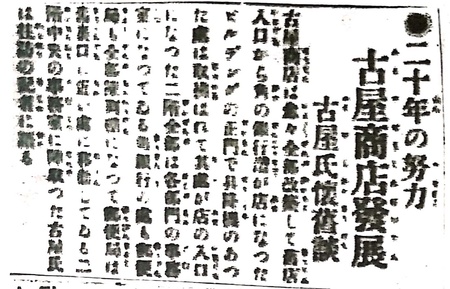 ●二十年の努力
古屋商店發展
古屋氏懷舊談
古屋商店は愈々全部改築して商店
入口から角の銀行迄が店になつた
ビルデングの正門で昇降機のあつ
た處は取拂はれて其處が店の入口
になつた二階全部は各部門の事務
室になつてゐる當銀行の處も郵便
局も全部深町通になつて郵便局は
北裏口に近い處に移轉してゐる二
階中央の事務室に陣取つた古屋氏
は往時の記者に語る